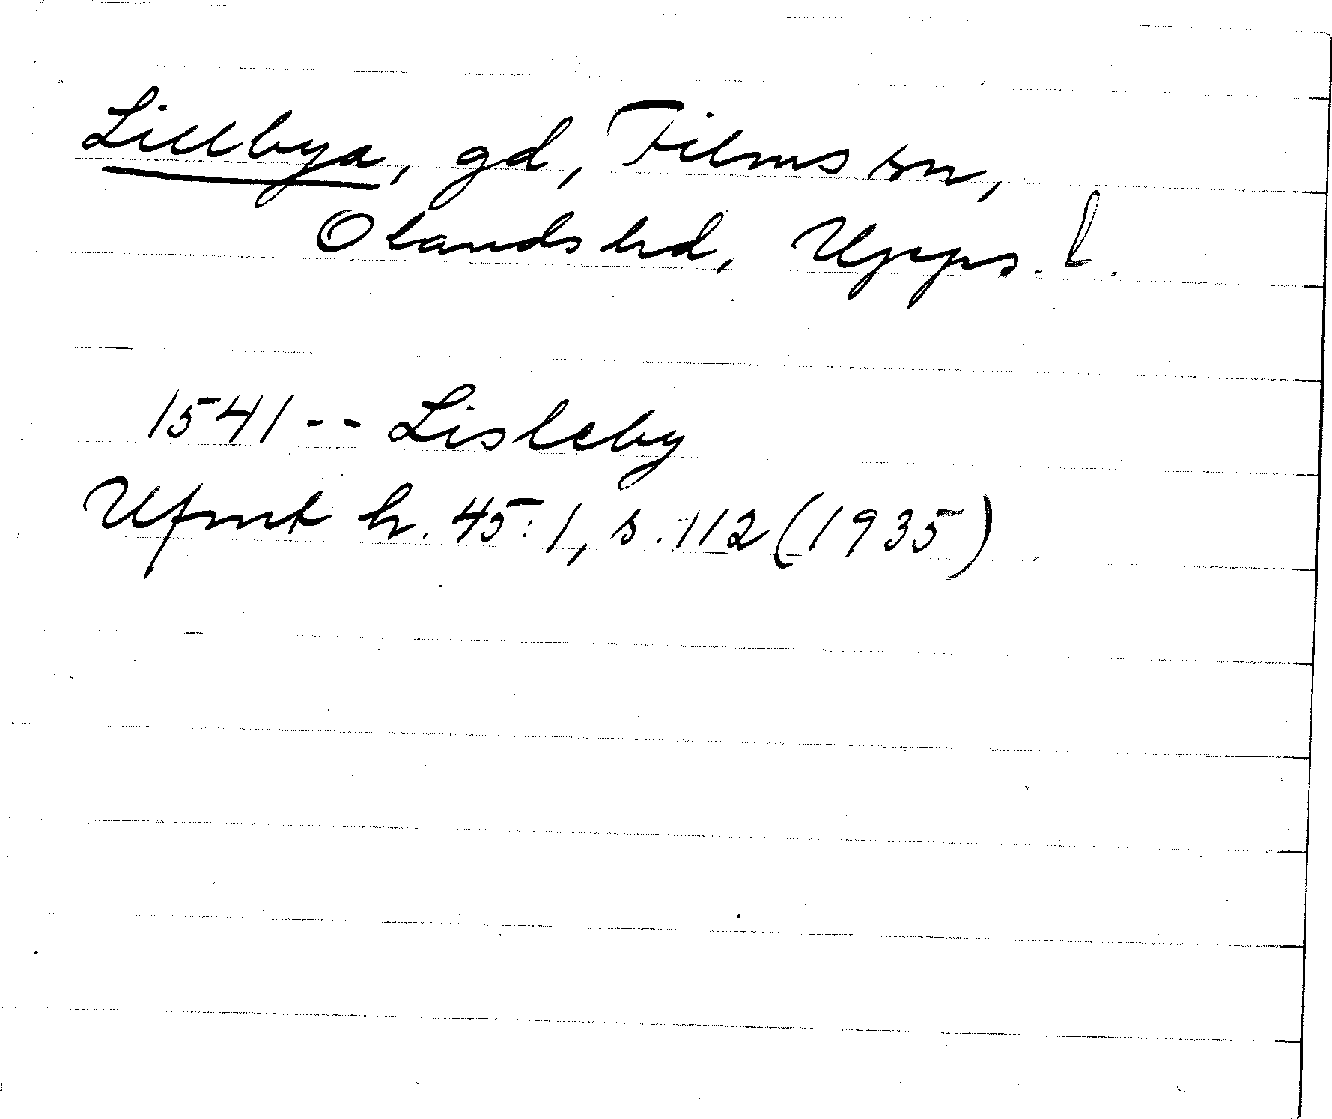 Lillbya, gd, Films sn,
Olands hd, Upps. l.
1541 -- Lisleby
Ufmt h. 45:1, s. 112 (1935)